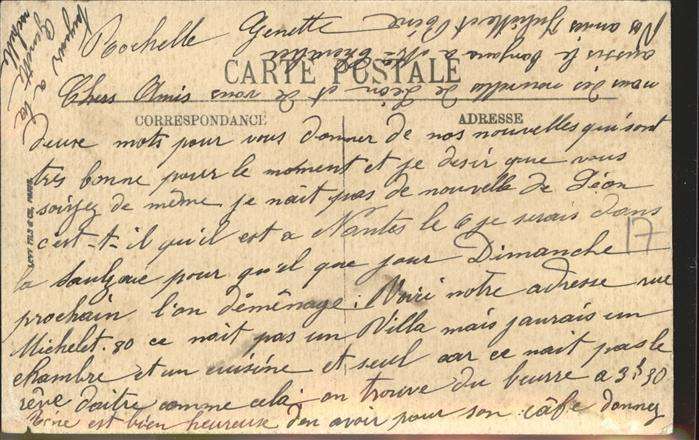 Rochelle Genette
CARTE POSTALE
Chers Amis
CORRESPONDANCE
ADRESSE
deux mots pour vous donner de nos nouvelles qui sont
très bonne pour le moment et je desir que vous
soiyez de même je nait pas de nouvelle de Léon
c'est-t-il qu'il est a Nantes le 6 je serais dans
la pour quel que jour Dimanche
17
prochain l'on déménage. Voici notre adresse rue
Michelet. 80 ce nait pas un Villa mais j'aurais un
chambre et un cuisine et seul car ce nait pas le
rêve d'aitre comme cela. on trouve du beurre a 3f 30
est bien heureuse d'en avoir pour son câfé donnez
moi des nouvelle de Léon et de vous
aussi le bonjour a Me
Nos amis et
LEVY FILS & CIE. PARIS
bonjour a la
Genette